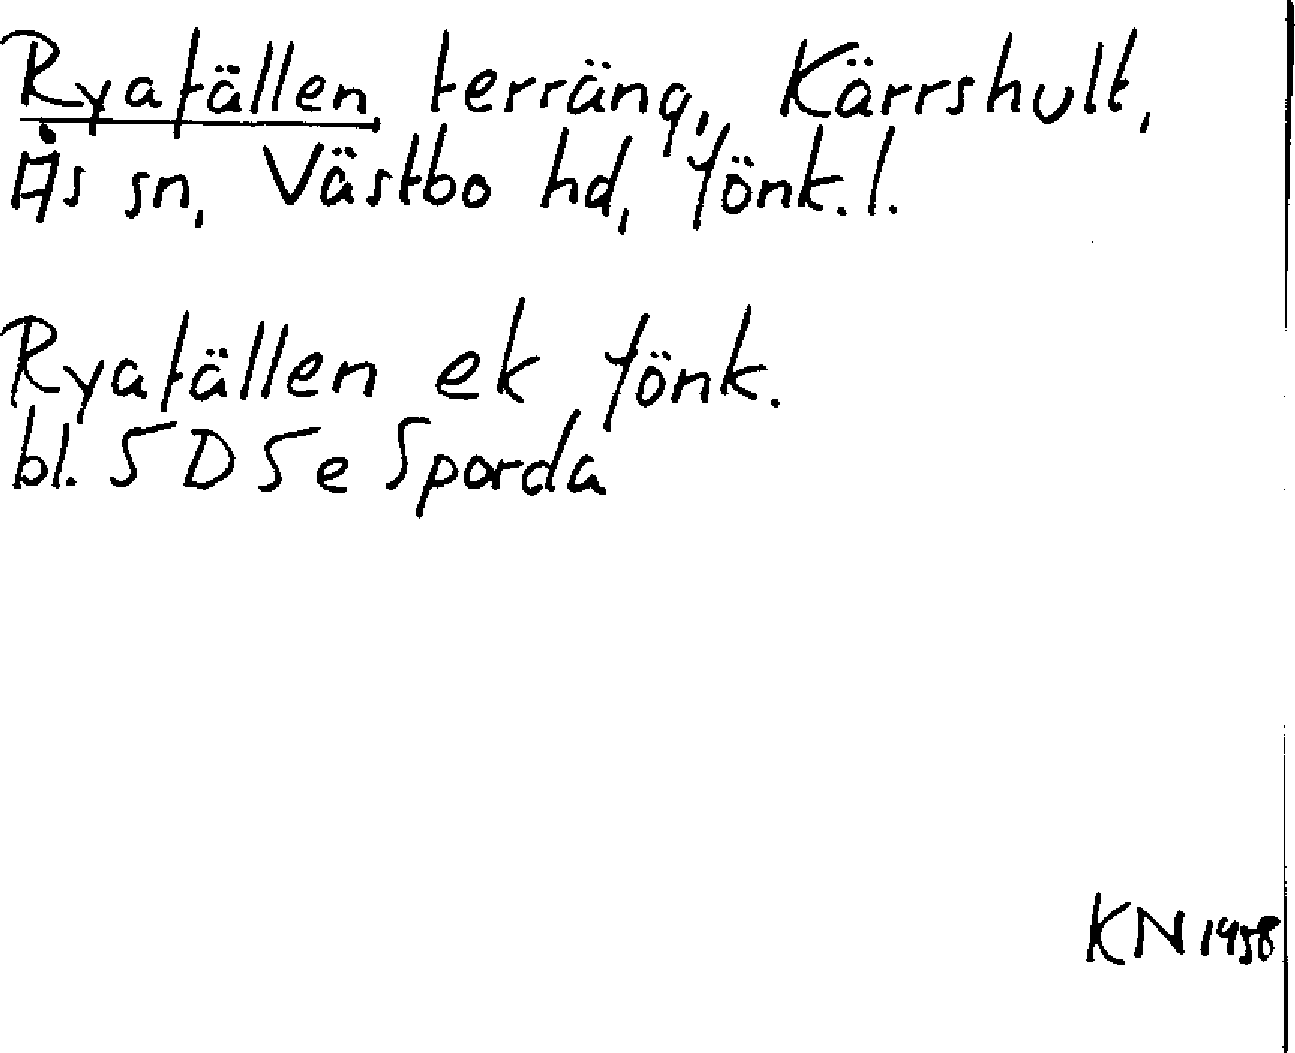 Ryafällen, terräng, Kärrshult,
Ås sn, Västbo hd, Jönk.l.
Ryafällen ek Jönk.
bl. 5 D 5 e Sporda
KN 1958